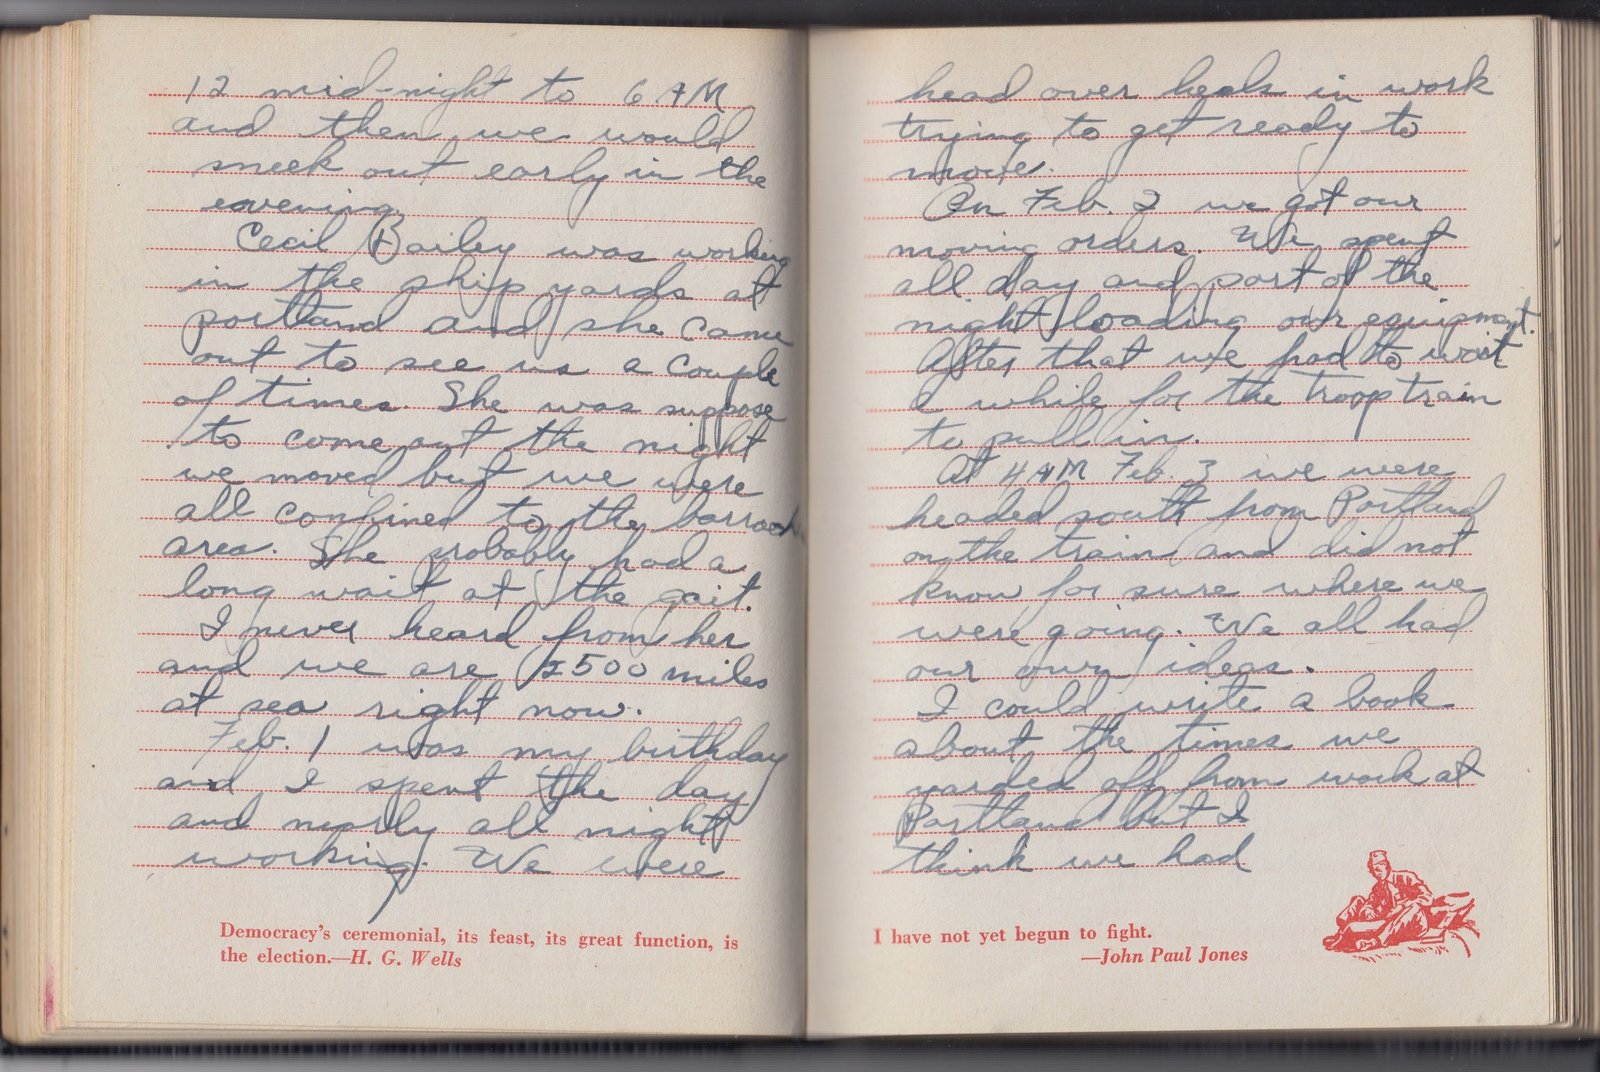 12 mid-night to 6 AM
and then we would
sneek out early in the
eovening.
Cecil Bailey was working
in the ship yards at
portland and she came
out to see us a couple
of times. She was suppose
to come out the night
we moved but we were
all confined to the barracks
area. She probably had a
long wait at the gait.
I never heard from her
and we are 2500 miles
at sea right now.
Feb. 1 was my birthday
and I spent the day
and nearly all night
working. We were
Democracy's ceremonial, its feast, its great function, is
the election.—H. G. Wells
head over heals in work
trying to get ready to
move.
On Feb. 2 we got our
moving orders. We spent
all day and part of the
night loading our equipment.
After that we had to wait
a while for the troop train
to pull in.
At 4 AM Feb. 3 we were
headed south from Portland
on the train and did not
know for sure where we
were going. We all had
our own ideas.
I could write a book
about the times we
yarded off from work at
Portland but I
think we had
I have not yet begun to fight.
—John Paul Jones